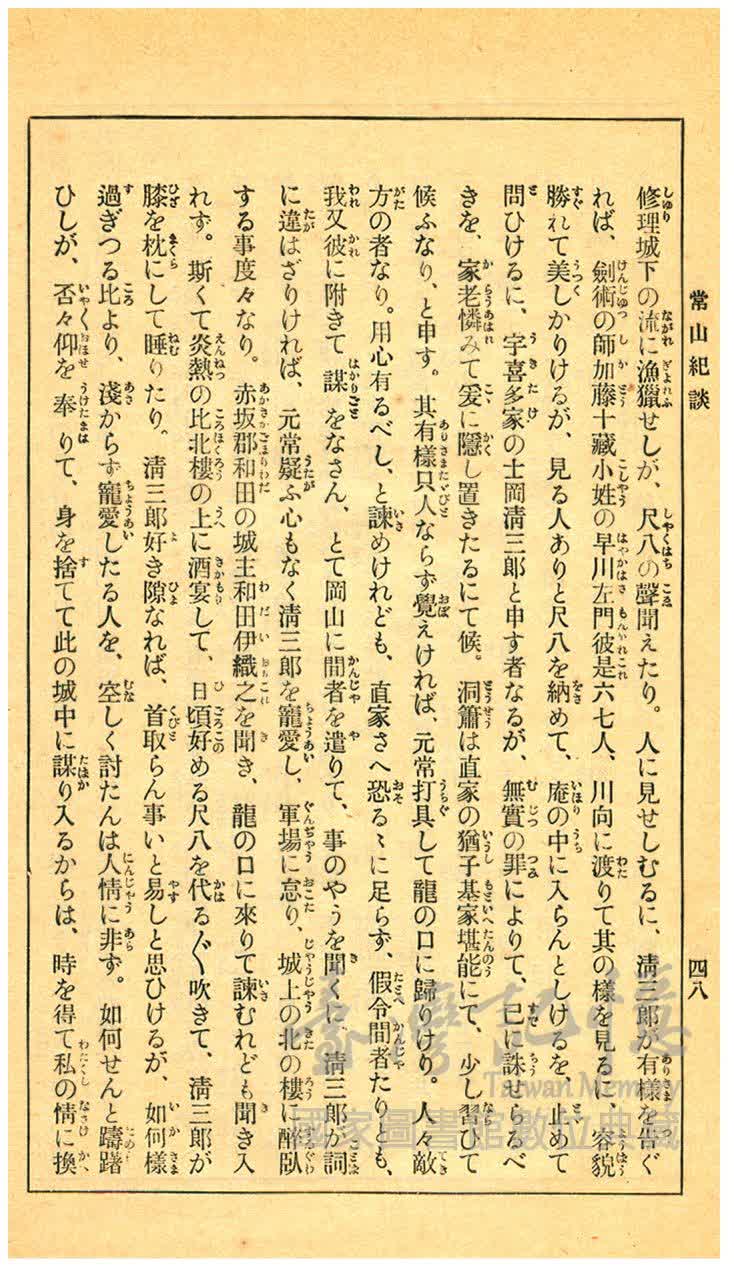 常山紀談
四八
修理城下の流に漁獵せしが、尺八の聲聞えたり。人に見せしむるに、淸三郎が有樣を吿ぐ
れば、劍術の師加藤十藏小姓の早川左門彼是六七人、川向に渡りて其の樣を見るに、容貌
勝れて美しかりけるが、見る人ありと尺八を納めて、庵の中に入らんとしけるを、止めて
問ひけるに、宇喜多家の士岡淸三郎と申す者なるが、無實の罪によりて、已に誅せらるべ
きを、家老憐みて爰に隱し置きたるにて候。洞簫は直家の猶子基家堪能にて、少し習ひて
候ふなり、と申す。其有樣只人ならず覺えければ、元常打具して龍の口に歸りけり。人々敵
方の者なり。用心有るべし、と諫めけれども、直家さへ恐るゝに足らず、假令間者たりとも、
我又彼に附きて謀をなさん、とて岡山に間者を遣りて、事のやうを聞くに、淸三郎が詞
に違はざりければ、元常疑ふ心もなく淸三郎を寵愛し、軍場に怠り、城上の北の樓に醉臥
する事度々なり。赤坂郡和田の城主和田伊織之を聞き、龍の口に來りて諫むれども聞き入
れず。斯くて炎熱の比北樓の上に酒宴して、日頃好める尺八を代る〴〵吹きて、淸三郎が
膝を枕にして睡りたり。淸三郎好き隙なれば、首取らん事いと易しと思ひけるが、如何樣
過ぎつる比より、淺からず寵愛したる人を、空しく討たんは人情に非ず。如何せんと躊躇
ひしが、否々仰を奉りて、身を捨てて此の城中に謀り入るからは、時を得て私の情に換
臺灣記憶
Taiwan Memory
國家圖書館數位典藏